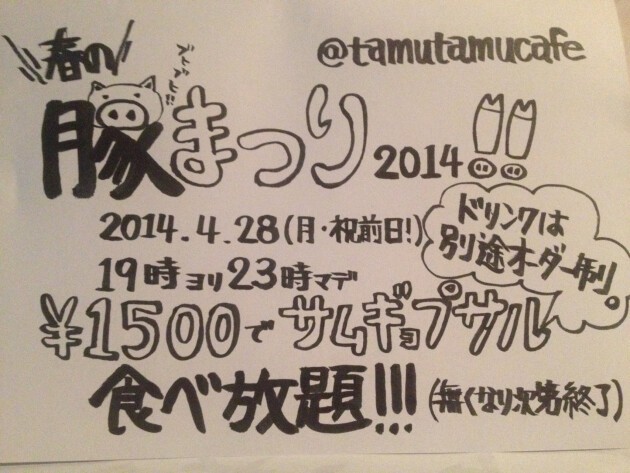 春の
@tamutamucafe
ブヒブヒ!!
豚まつり2014!!
2014.4.28(月・祝前日!)
ドリンクは
別途オーダー制。
19時ヨリ23時マデ
¥1500でサムギョプサル
食べ放題!!!(無くなり次第終了)